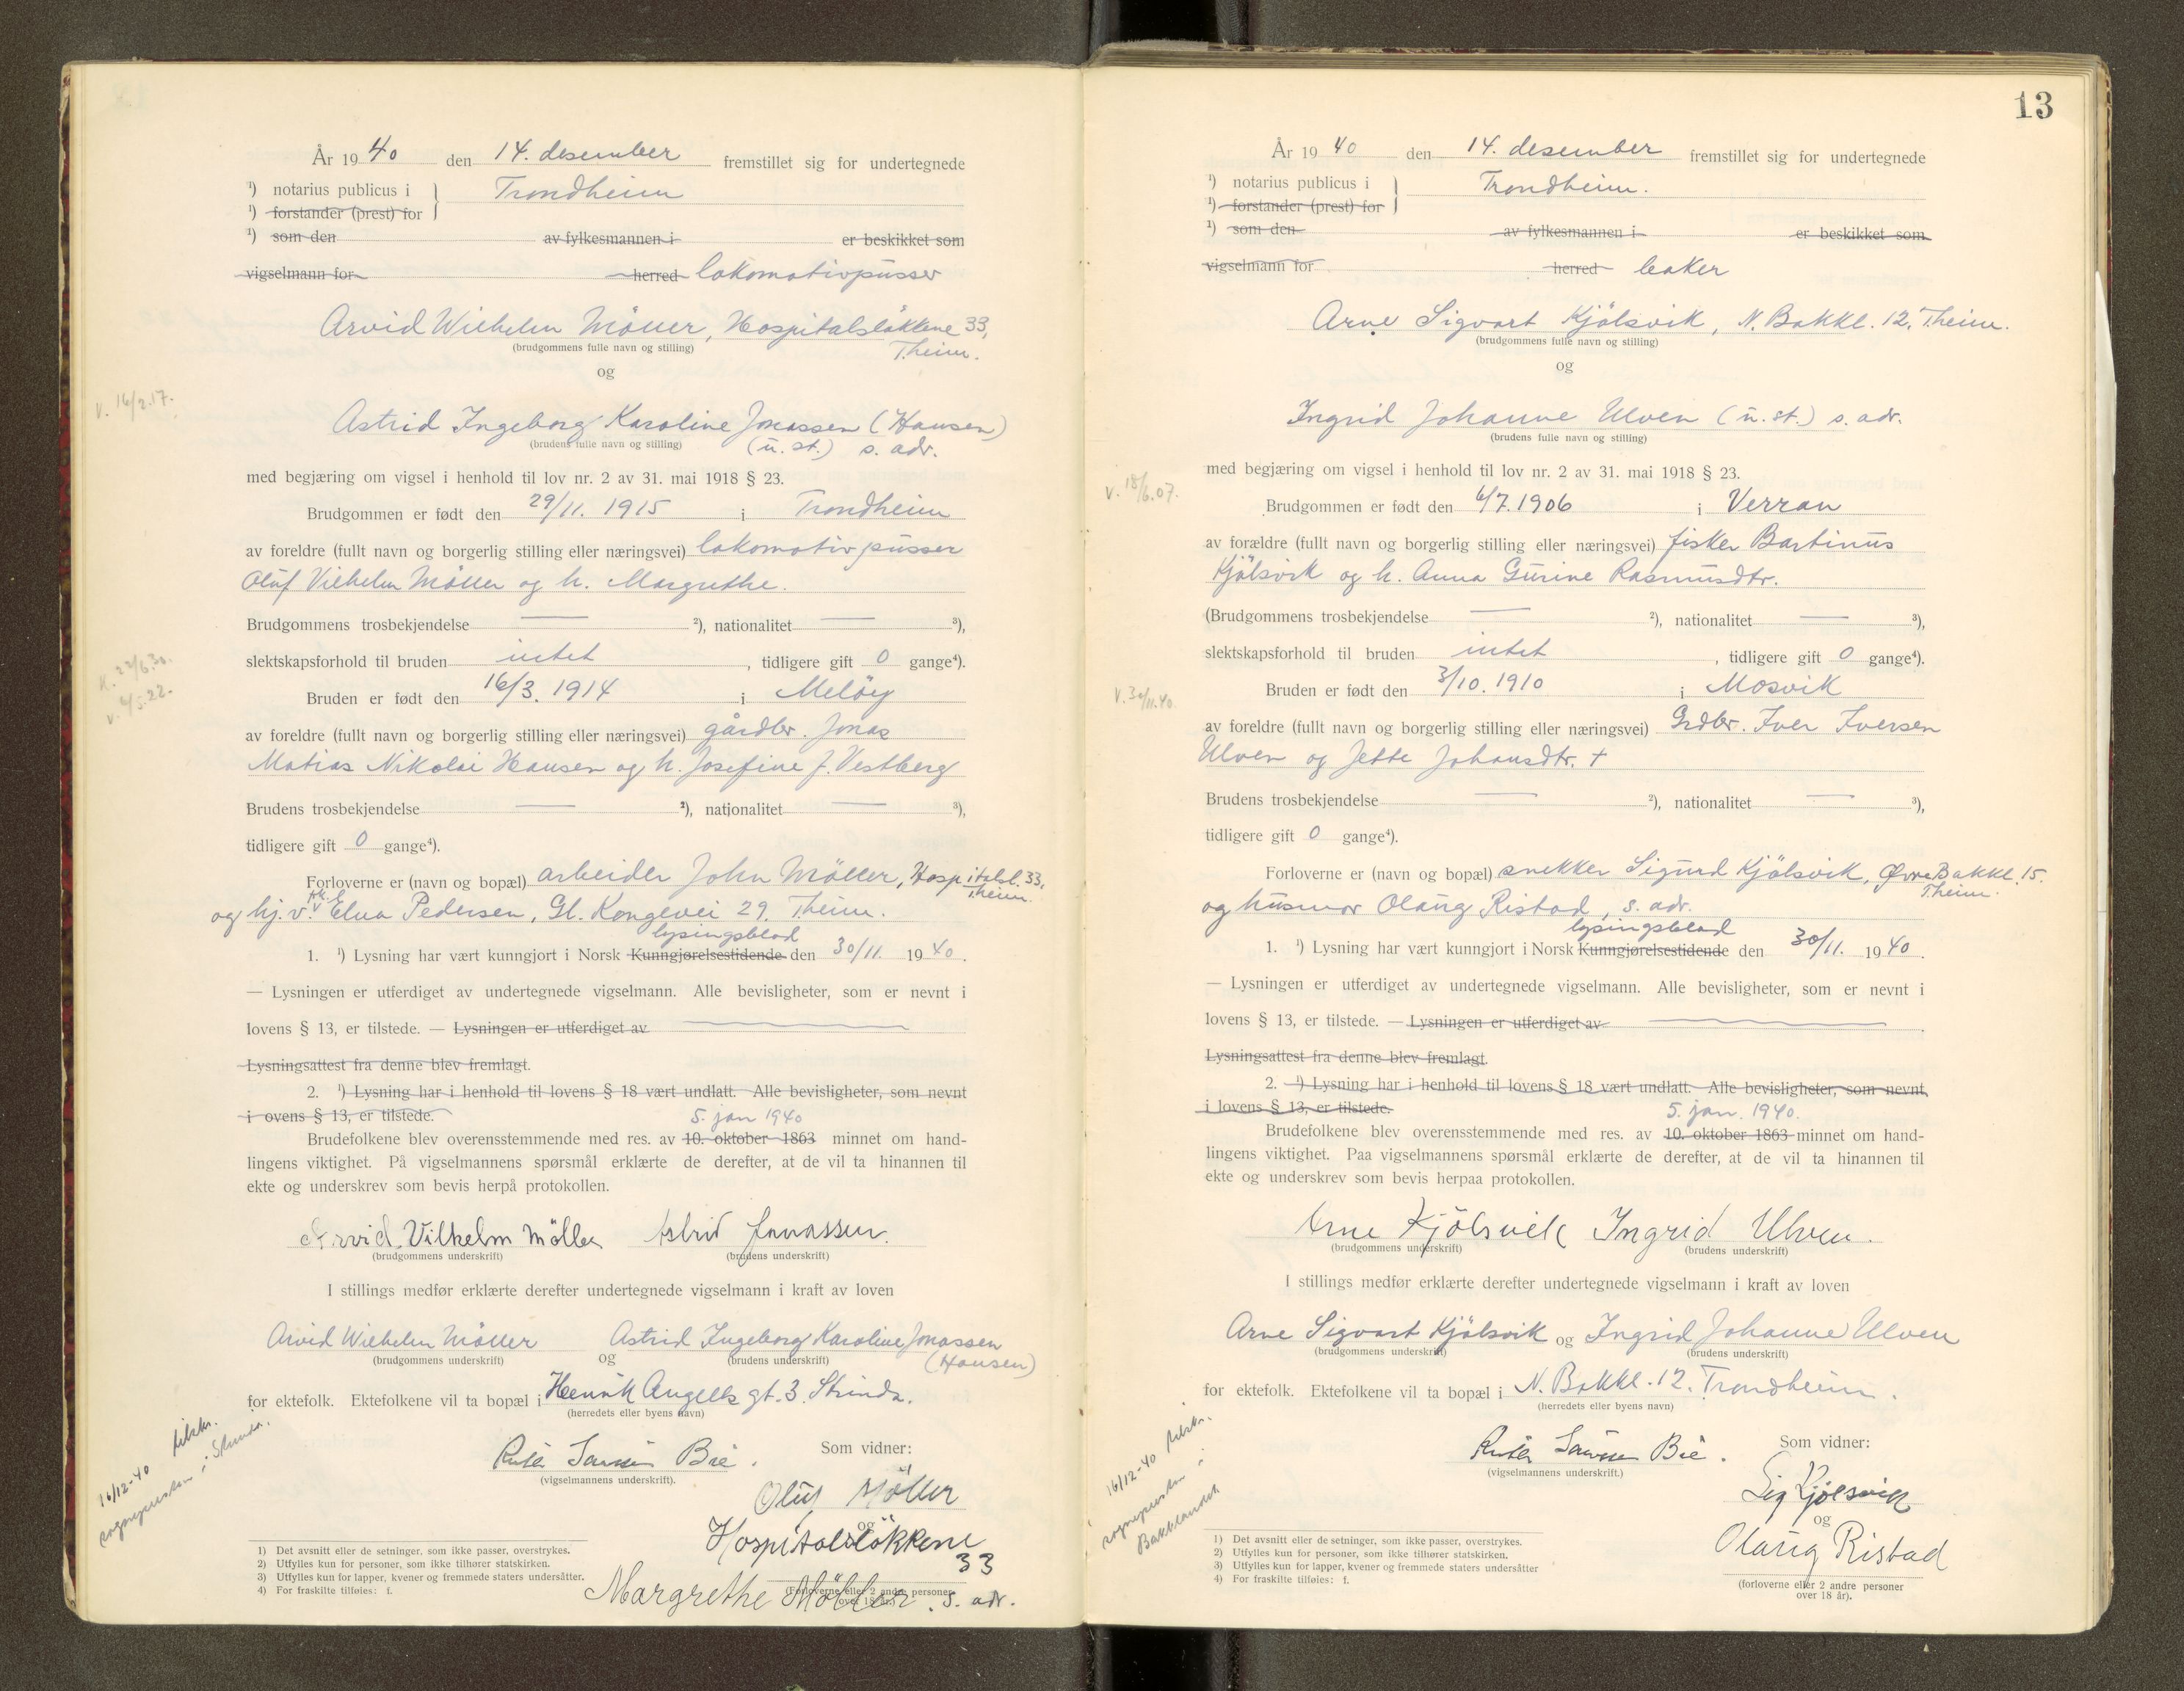 År 19 40 den 14. desember fremstillet sig for undertegnede
¹) notarius publicus i } Trondheim
¹) forstander (prest) for
¹) som den av fylkesmannen i er beskikket som
vigselmann for herred lokomotivpusser
Arvid Wilhelm Möller, Hospitalsløkkene 33,
(brudgommens fulle navn og stilling) T.heim.
og
V. 16/2.17.
Astrid Ingeborg Karoline Jonassen (Hansen)
(brudens fulle navn og stilling) (u. st.) s. adr.
med begjæring om vigsel i henhold til lov nr. 2 av 31. mai 1918 § 23.
Brudgommen er født den 29/11. 1915 i Trondheim
av foreldre (fullt navn og borgerlig stilling eller næringsvei) lokomotivpusser
Oluf Vilhelm Möller og h. Margrethe.
Brudgommens trosbekjendelse — ²), nationalitet — ³),
slektskapsforhold til bruden intet, tidligere gift 0 gange⁴).
V. 4/5.22.
Bruden er født den 16/3. 1914 i Meløy
av foreldre (fullt navn og borgerlig stilling eller næringsvei) gårdbr. Jonas
Matias Nikolai Hansen og h. Josefine J. Vestberg
Brudens trosbekjendelse — ²), nationalitet — ³),
tidligere gift 0 gange⁴).
Forloverne er (navn og bopæl) arbeider John Möller, Hospitalsl. 33, T.heim.
og hj.v. Elva Pedersen, Gl. Kongevei 29, T.heim.
lysingsblad
1. ¹) Lysning har vært kunngjort i Norsk Kunngjørelsestidende den 30/11. 19 40.
— Lysningen er utferdiget av undertegnede vigselmann. Alle bevisligheter, som er nevnt i
lovens § 13, er tilstede. — Lysningen er utferdiget av
Lysningsattest fra denne blev fremlagt.
2. ¹) Lysning har i henhold til lovens § 18 vært undlatt. Alle bevisligheter, som nevnt
i ovens § 13, er tilstede.
5. jan 1940
Brudefolkene blev overensstemmende med res. av 10. oktober 1863 minnet om hand-
lingens viktighet. På vigselmannens spørsmål erklærte de derefter, at de vil ta hinannen til
ekte og underskrev som bevis herpå protokollen.
Arvid Vilhelm Möller Astrid Jonassen.
(brudgommens underskrift) (brudens underskrift)
I stillings medfør erklærte derefter undertegnede vigselmann i kraft av loven
Arvid Wilhelm Möller og Astrid Ingeborg Karoline Jonassen
(brudgommens underskrift) (brudens underskrift) (Hansen)
for ektefolk. Ektefolkene vil ta bopæl i Henrik Angells gt. 3. Strinda.
(herredets eller byens navn)
16/12-40 tilskr.
sognepresten i Strinda.
Bie. Som vidner:
(vigselmannens underskrift).
Oluf Möller
og
Hospitalsløkkene
33
Margrethe Möller. s. adr.
(Forloverne eller 2 andre personer
over 18 år).
1) Det avsnitt eller de setninger, som ikke passer, overstrykes.
2) Utfylles kun for personer, som ikke tilhører statskirken.
3) Utfylles kun for lapper, kvener og fremmede staters undersåtter.
4) For fraskilte tilføies: f.
13
År 19 40 den 14. desember fremstillet sig for undertegnede
¹) notarius publicus i } Trondheim.
¹) forstander (prest) for
¹) som den av fylkesmannen i er beskikket som
vigselmann for herred baker
Arne Sigvart Kjölsvik, N. Bakkl. 12, T.heim.
(brudgommens fulle navn og stilling)
og
Ingrid Johanne Ulven (u. st.) s. adr.
(brudens fulle navn og stilling)
med begjæring om vigsel i henhold til lov nr. 2 av 31. mai 1918 § 23.
V. 18/6.07.
Brudgommen er født den 6/7.1906 i Verran
av forældre (fullt navn og borgerlig stilling eller næringsvei) fisker Bartinus
Kjölsvik og h. Anna Gurine Rasmusdtr.
(Brudgommens trosbekjendelse — ²), nationalitet — ³),
slektskapsforhold til bruden intet, tidligere gift 0 gange⁴).
V. 30/11.40.
Bruden er født den 3/10. 1910 i Mosvik
av foreldre (fullt navn og borgerlig stilling eller næringsvei) Grdbr. Iver Iversen
Ulven og Jette Johansdtr. +
Brudens trosbekjendelse — ²), nationalitet — ³),
tidligere gift 0 gange⁴).
Forloverne er (navn og bopæl) snekker Sigurd Kjölsvik, Øvre Bakkl. 15. T.heim.
og husmor Olaug Ristad, s. adr.
lysingsblad
1. ¹) Lysning har vært kunngjort i Norsk Kunngjørelsestidende den 30/11. 19 40.
— Lysningen er utferdiget av undertegnede vigselmann. Alle bevisligheter, som er nevnt i
lovens § 13, er tilstede. — Lysningen er utferdiget av
Lysningsattest fra denne blev fremlagt.
2. ¹) Lysning har i henhold til lovens § 18 vært undlatt. Alle bevisligheter, som nevnt,
i lovens § 13, er tilstede.
5. jan. 1940.
Brudefolkene blev overensstemmende med res. av 10. oktober 1863 minnet om hand-
lingens viktighet. Paa vigselmannens spørsmål erklærte de derefter, at de vil ta hinannen til
ekte og underskrev som bevis herpaa protokollen.
Arne Kjölsvik Ingrid Ulven.
(brudgommens underskrift) (brudens underskrift)
I stillings medfør erklærte derefter undertegnede vigselmann i kraft av loven
Arne Sigvart Kjölsvik og Ingrid Johanne Ulven
(brudgommens underskrift) (brudens underskrift)
for ektefolk. Ektefolkene vil ta bopæl i N. Bakkl. 12. Trondheim.
(herredets eller byens navn)
16/12-40 tilskr.
sognepresten i
Bakklandet.
Bie. Som vidner:
(vigselmannens underskrift.)
Sig Kjølsvik
og
Olaug Ristad
(forloverne eller 2 andre personer
over 18 år).
1) Det avsnitt eller de setninger, som ikke passer, overstrykes.
2) Utfylles kun for personer, som ikke tilhører statskirken.
3) Utfylles kun for lapper, kvener og fremmede staters undersåtter
4) For fraskilte tilføies: f.